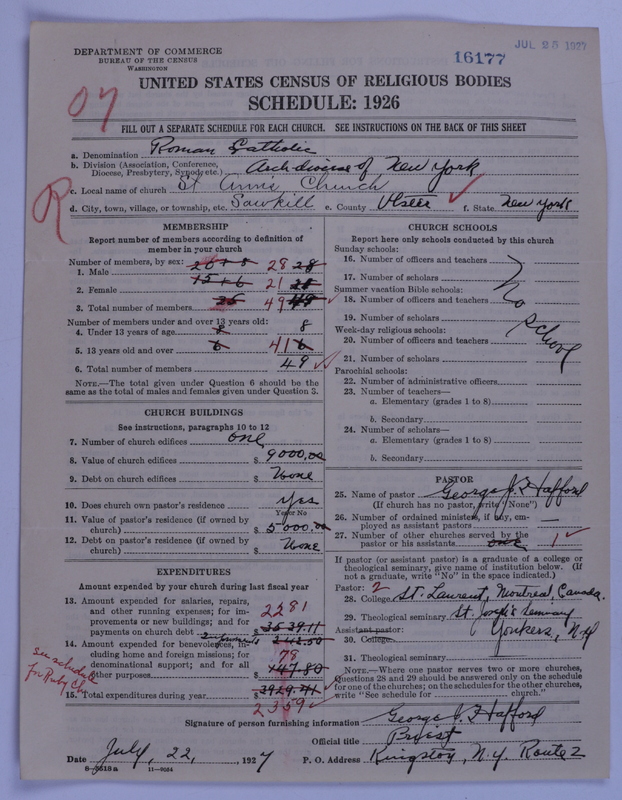 DEPARTMENT OF COMMERCE
BUREAU OF THE CENSUS
WASHINGTON
16177
JUL 25 1927
UNITED STATES CENSUS OF RELIGIOUS BODIES
SCHEDULE: 1926
07
FILL OUT A SEPARATE SCHEDULE FOR EACH CHURCH. SEE INSTRUCTIONS ON THE BACK OF THIS SHEET
a. Denomination Roman Catholic
b. Division (Association, Conference, Diocese, Presbytery, Synod, etc.) Archdiocese of New York
c. Local name of church St Ann's Church
R
d. City, town, village, or township, etc. Sawkill e. County Ulster f. State New York
MEMBERSHIP
Report number of members according to definition of
member in your church
Number of members, by sex:
1. Male 20+8 28 28
2. Female 15+6 21
3. Total number of members 35 49
Number of members under and over 13 years old:
4. Under 13 years of age 8 8
5. 13 years old and over 6 41 6
6. Total number of members 49
NOTE.—The total given under Question 6 should be the
same as the total of males and females given under Question 3.
CHURCH BUILDINGS
See instructions, paragraphs 10 to 12
7. Number of church edifices one
8. Value of church edifices $ 9000.00
9. Debt on church edifices $ None
10. Does church own pastor's residence? Yes
Yes or No
11. Value of pastor's residence (if owned by
church) $ 5000.00
12. Debt on pastor's residence (if owned by
church) $ None
EXPENDITURES
Amount expended by your church during last fiscal year
13. Amount expended for salaries, repairs,
and other running expenses; for im-
provements or new buildings; and for
payments on church debt $ 3539.11 2281
14. Amount expended for benevolences, in-
cluding home and foreign missions; for
denominational support; and for all
other purposes $ 147.80 78
15. Total expenditures during year $ 2359
see schedule
for Ruby Ch
CHURCH SCHOOLS
Report here only schools conducted by this church
Sunday schools:
16. Number of officers and teachers
17. Number of scholars
Summer vacation Bible schools:
18. Number of officers and teachers
19. Number of scholars
Week-day religious schools:
20. Number of officers and teachers
21. Number of scholars
No School
Parochial schools:
22. Number of administrative officers
23. Number of teachers—
a. Elementary (grades 1 to 8)
b. Secondary
24. Number of scholars—
a. Elementary (grades 1 to 8)
b. Secondary
PASTOR
25. Name of pastor George J. F Hafford
(If church has no pastor, write "None")
26. Number of ordained ministers, if any, em-
ployed as assistant pastors —
27. Number of other churches served by the
pastor or his assistants one 1
If pastor (or assistant pastor) is a graduate of a college or
theological seminary, give name of institution below. (If
not a graduate, write "No" in the space indicated.)
Pastor: 2
28. College St. Laurent, Montreal, Canada.
29. Theological seminary St. Joseph's Seminary
Yonkers, N.Y
Assistant pastor:
30. College
31. Theological seminary
NOTE.—Where one pastor serves two or more churches,
Questions 28 and 29 should be answered only on the schedule
for one of the churches; on the schedules for the other churches,
write "See schedule for church."
Signature of person furnishing information George J. F Hafford
Official title Priest
Date July, 22, 1927 P. O. Address Kingston, N.Y. Route 2
8—5518a 11—9054